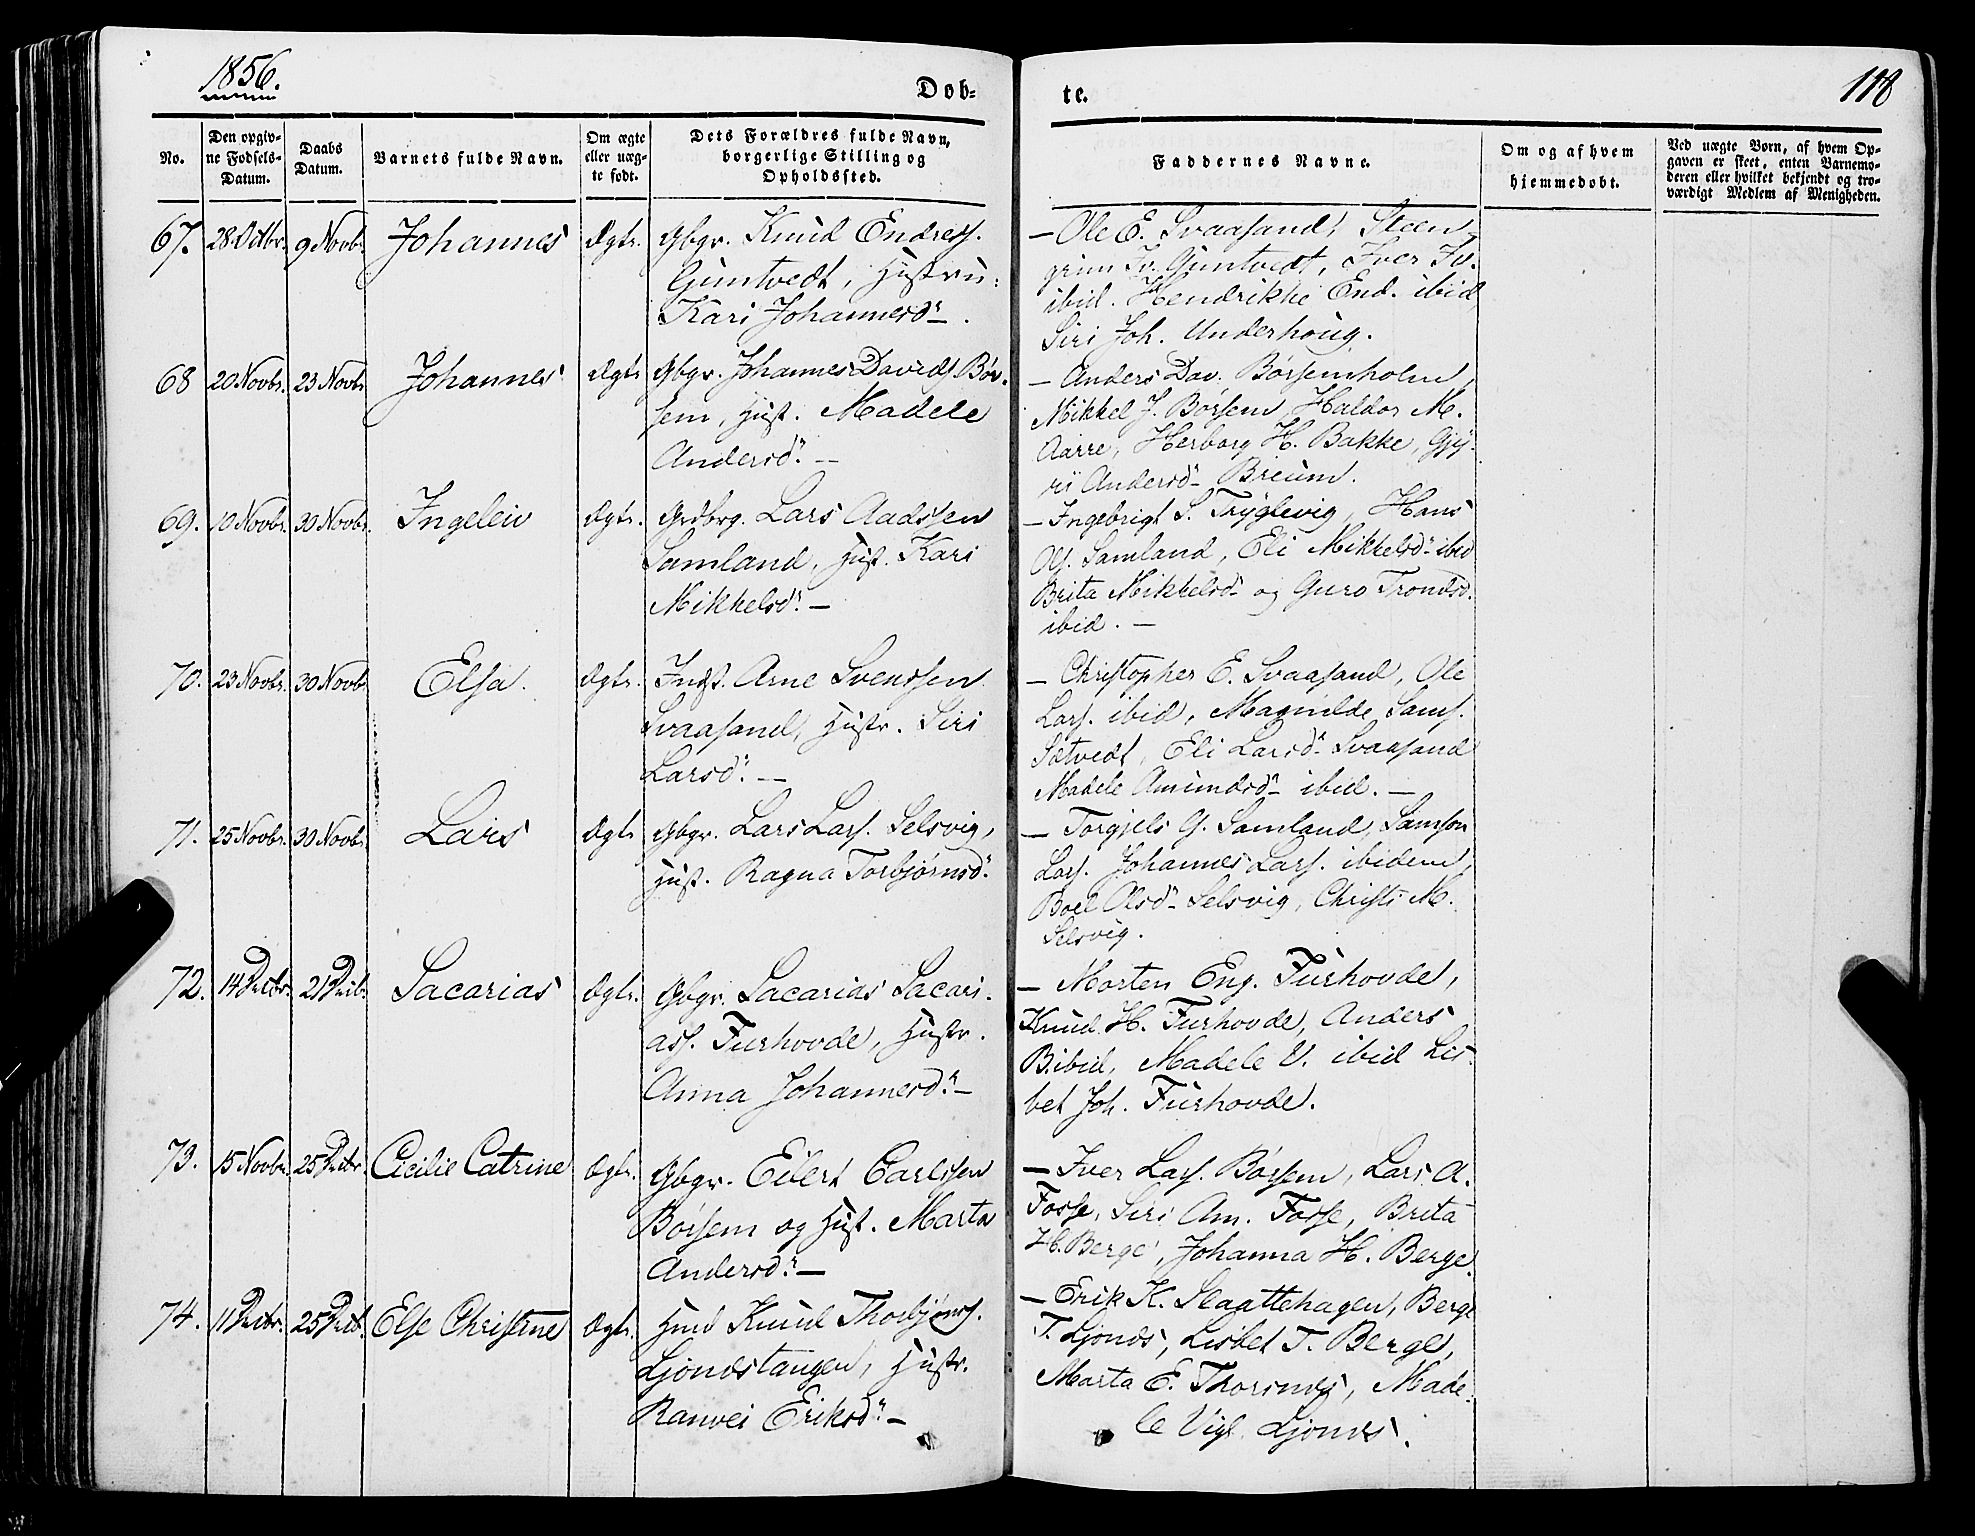 1856.
Døb=
te.
118
No.
Den opgiv-
ne Fødsels-
Datum.
Daabs
Datum.
Barnets fulde Navn.
Om ægte
eller uæg-
te født.
Dets Forældres fulde Navn,
borgerlige Stilling og
Opholdssted.
Faddernes Navne.
Om og af hvem
hjemmedøbt.
Ved uægte Børn, af hvem Op-
gaven er skeet, enten Barnemo-
deren eller hvilket bekjendt og tro-
værdigt Medlem af Menigheden.
67. 28 Octbr. 9 Novb. Johannes Ægte. Gbgr. Knud Endress.
Guntvedt, Hustru:
Kari Johannesdr –.
– Ole E. Svaasand, Steen-
grim Iv. Guntvedt, Iver Iv.
ibid. Hendrikke End. ibid,
Siri Joh. Underhoug.
68 20 Novbr. 23 Novbr Johannes Ægte Gbgr. Johannes Davids. Bør-
sem, Hust. Madele
Andersdr. –
– Anders Dav. Børsemholm,
Mikkel J. Børsem, Haldor M.
Aarre, Herborg H. Bakke, Gjy-
ri Andersdr – Breum.
69. 10 Novbr. 30 Novbr. Ingeleiv Ægte. Grdbrg. Lars Aadssen
Samland, Hust. Kari
Mikkelsdr. –
– Ingebrigt S. Tryglevig, Hans
Ols. Samland, Eli Mikkelsdr ibid
Brita Mikkelsdr og Guro Trondsd.
ibid. –
70. 23 Novbr. 30 Novb. Elsa. Ægte. Indst. Arne Svendsen
Svaasand, Hustr. Siri
Larsdr. –
– Christopher E. Svaasand, Ole
Lars. ibid, Magnilde Sams.
Sætvedt, Eli Larsdr Svaasand
Madele Amundsdr – ibid. –
71. 25 Novbr. 30 Novb. Lars Ægte Gbgr. Lars Lars. Selsvig,
Hust. Ragna Torbjørnsdr.
– Torgjels G. Samland, Samson
Lars. Johannes Lars. ibidem,
Boel Olsdr – Selsvig, Christi M.
Selsvig.
72. 14 Decbr. 21 Decb. Sacarias Ægte. Gbgr. Sacarias Sacari-
ass. Furhovde, Hustr.
Anna Johannesdr. –
– Morten Eng. Furhovde,
Knud H. Furhovde, Anders
B. ibid, Madele V. ibid Lis-
bet Joh. Furhovde.
73. 15 Novbr. 25 Decbr. Cicilie Catrine Ægte. Gbgr. Eilert Carlssen
Børsem og Hust. Marta
Andersdr. –
– Iver Lars. Børsem, Lars A.
Fosse, Siri Am. Fosse, Brita
H. Berge, Johanna H. Berge.
74. 11 Decbr. 25 Decb. Else Christine Ægte. Hmd Knud Thorbjørns.
Ljonestangen, Hustr.
Ranvei Eriksdr. –
– Erik K. Slaattehagen, Berge
T. Ljones, Lisbet T. Berge,
Marta E. Thorsnes, Made-
le Vigl. Ljones.